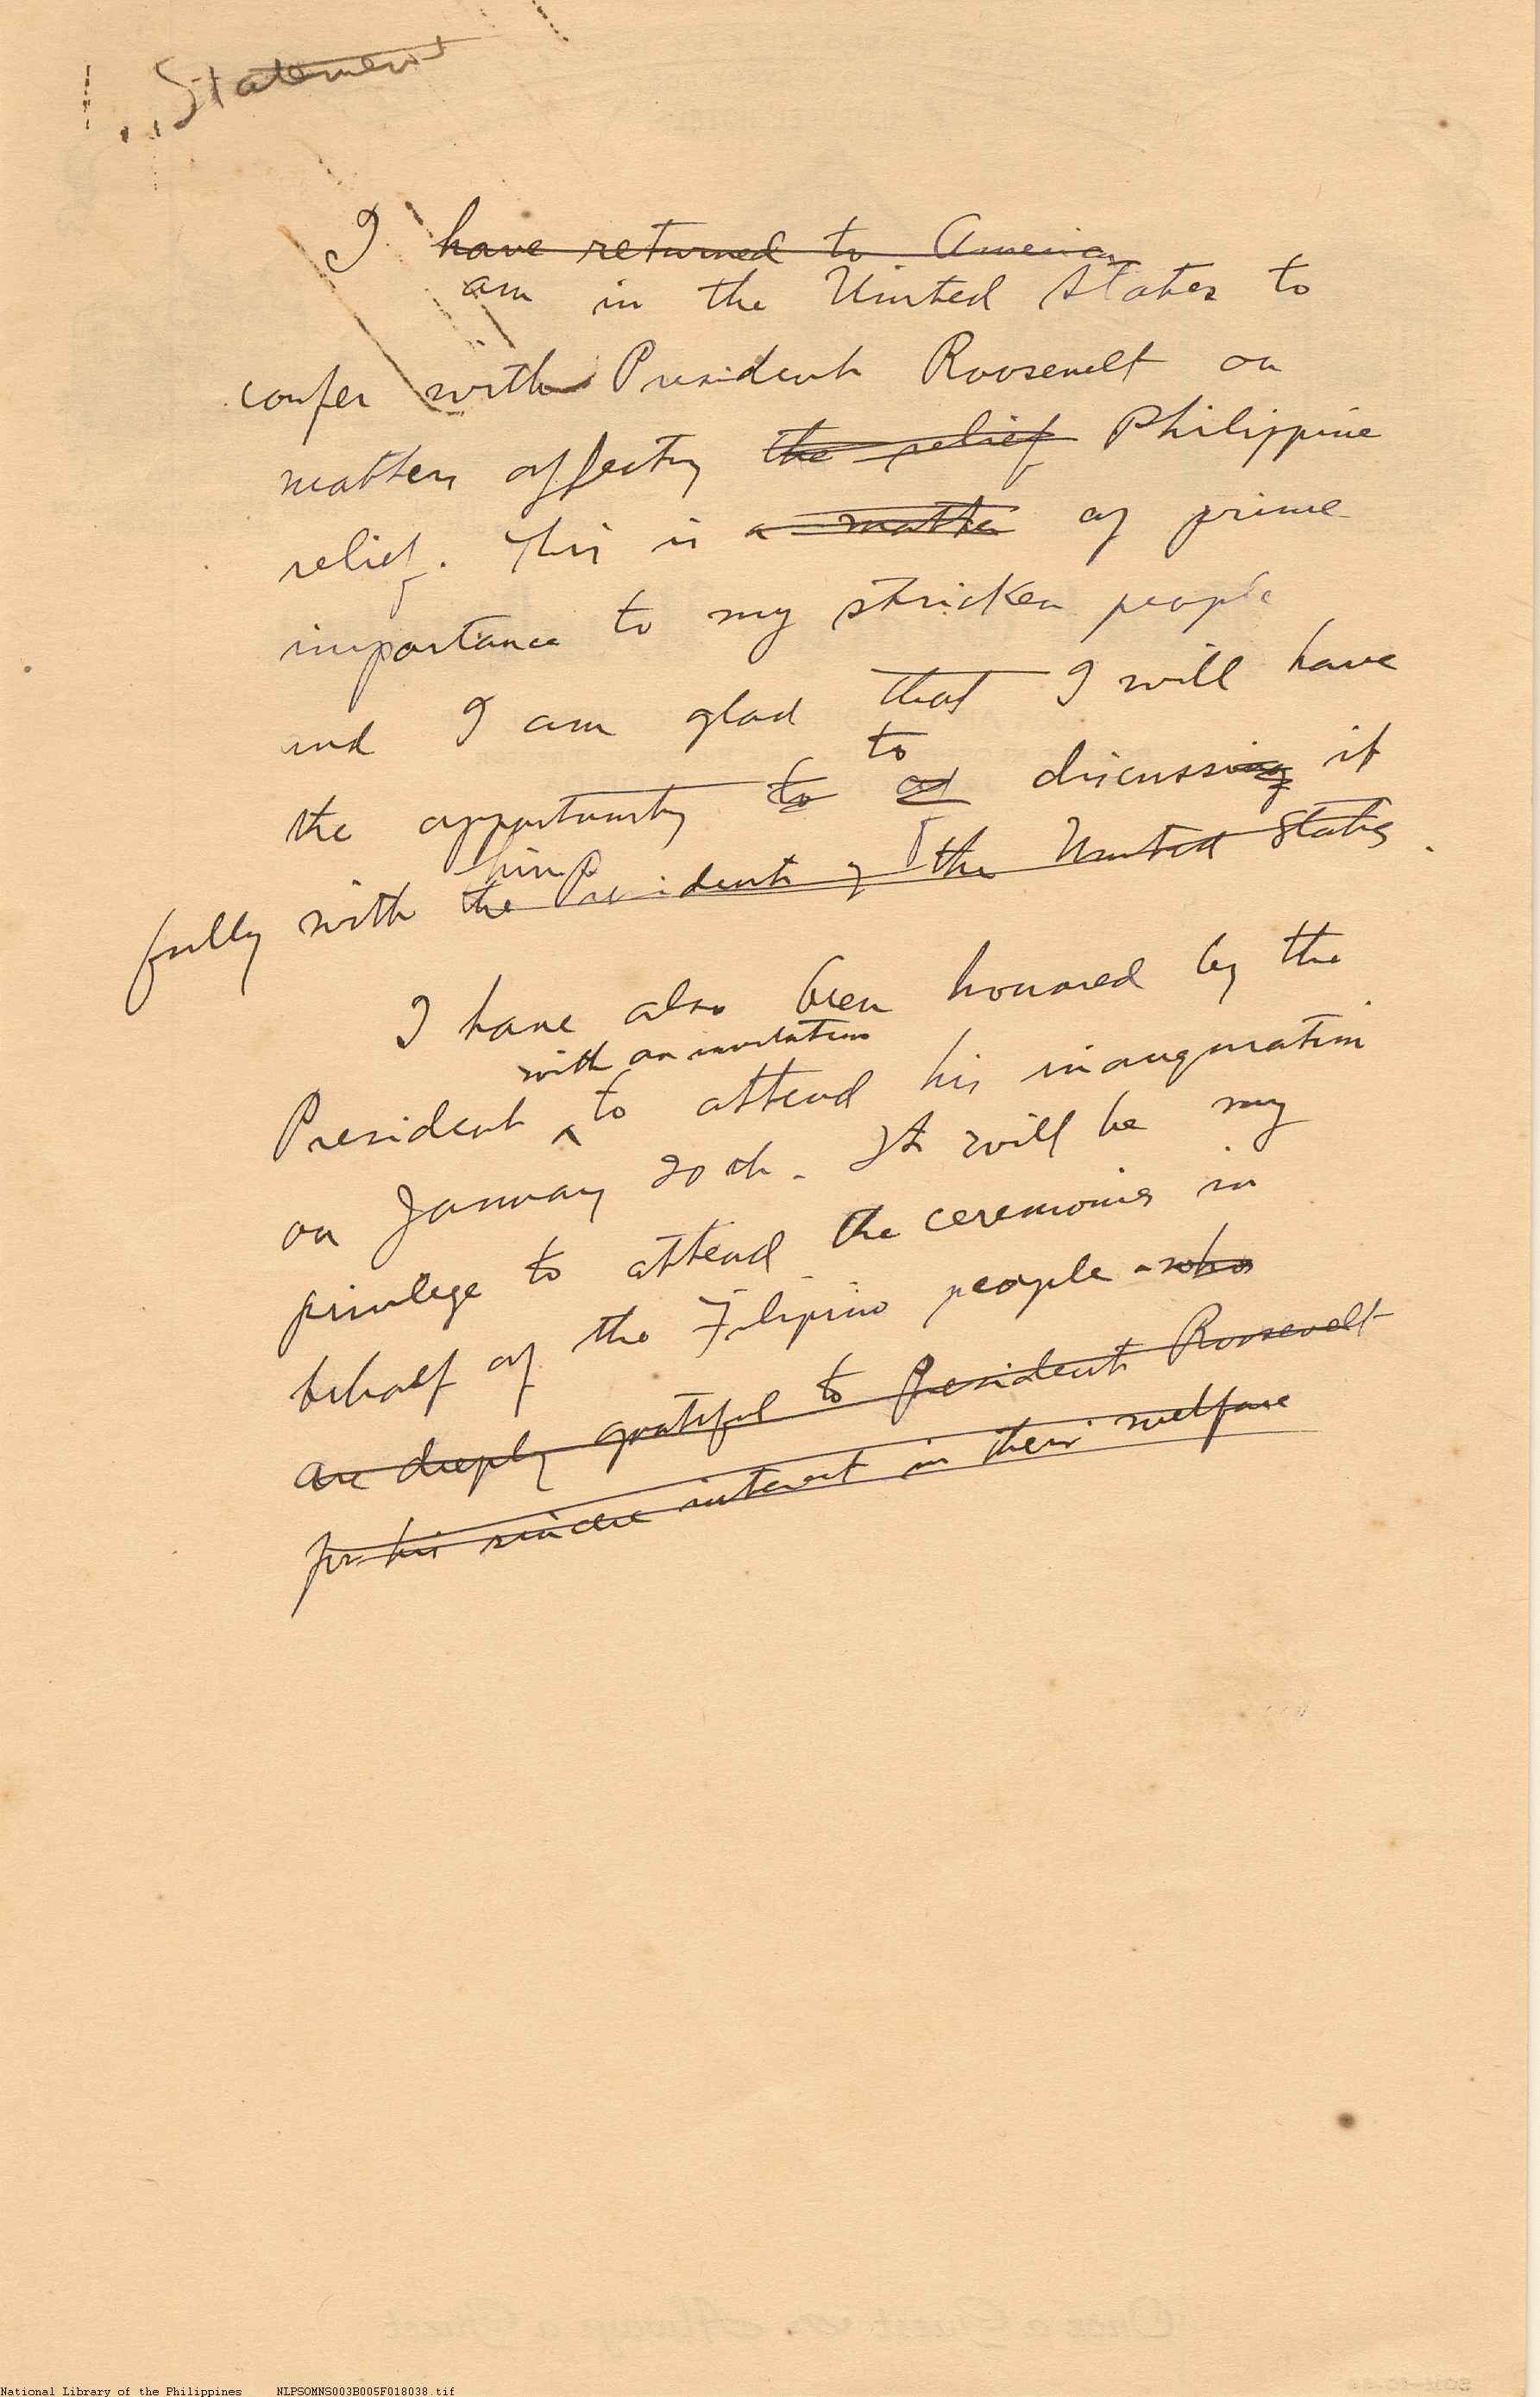 Statement
I have returned to America
am in the United States to
confer with President Roosevelt on
matters affecting the relief Philippine
relief. This is a matter of prime
importance to my stricken people
and I am glad that I will have
to
the opportunity to of discussing it
him
fully with the President of the United States.
I have also been honored by the
with an invitation
President ^ to attend his inauguration
on January 20th. It will be my
privilege to attend the ceremonies in
behalf of the Filipino people who
are deeply grateful to President Roosevelt
for his sincere interest in their welfare
Once a Guest Always a Guest
National Library of the Philippines NLPSOMNS003B005F018038.tif